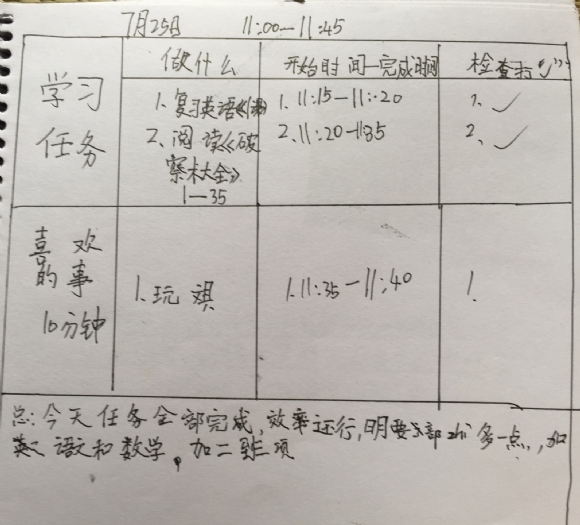 7月25日 11:00—11:45
做什么 开始时间—完成时间 检查打"√"
学习
任务
1、复习英语 1.11:15—11:20 1、✓
2、阅读《破 2、11:20—11:35 2、✓
案术大全》
1—35
喜欢
的事
10分钟
1、玩 1.11:35—11:40 1.
总:今天任务全部完成,效率还行,明要 部zhi多一点,,如
英、语文和数学,加二到三项